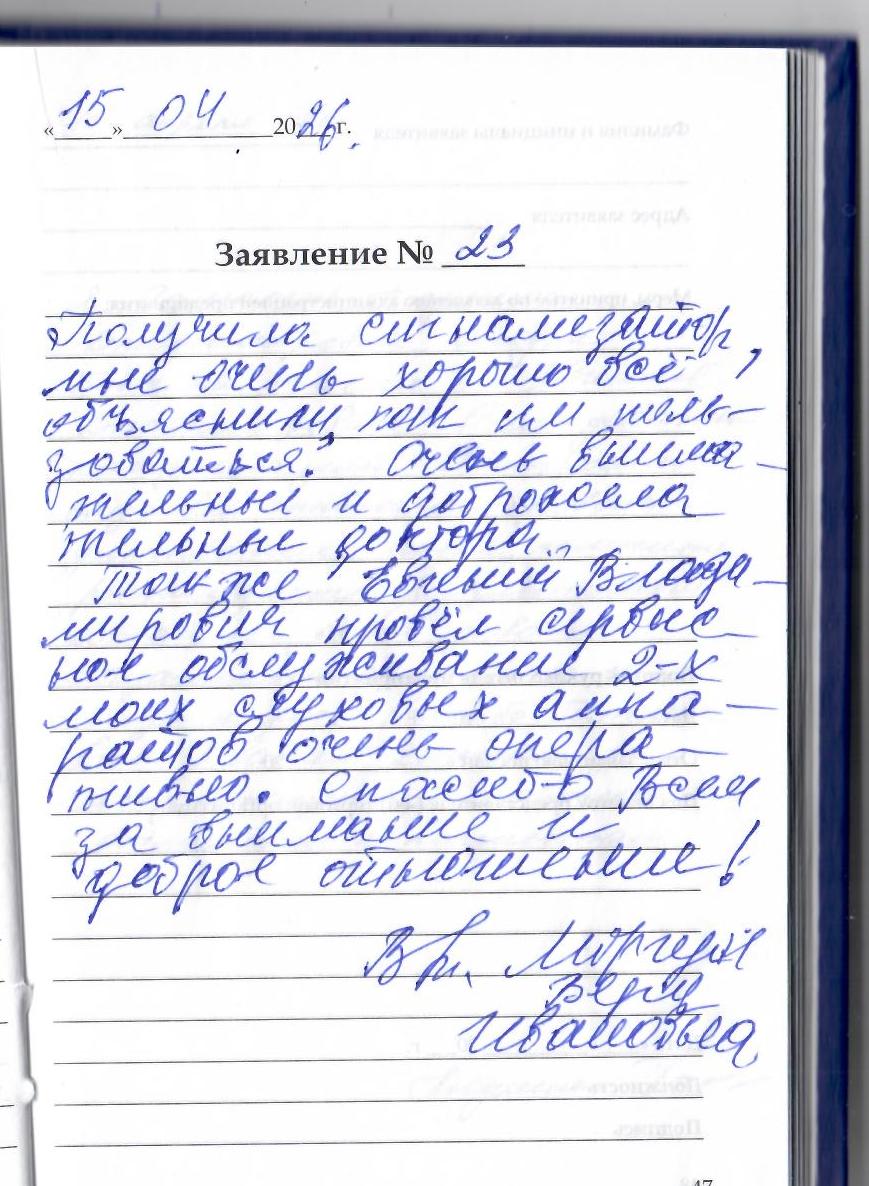 «15» 04 2026 г.
Заявление № 23
Получила сигнализатор,
мне очень хорошо всё
объяснили, как им поль-
зоваться. Очень внима-
тельные и доброжела
тельные доктора.
Также Евгений Влади-
мирович провёл сервис
ное обслуживание 2-х
моих слуховых аппа-
ратов очень опера-
тивно. Спасибо Всем
за внимание и
доброе отношение!
Моргун
Ивановна
47